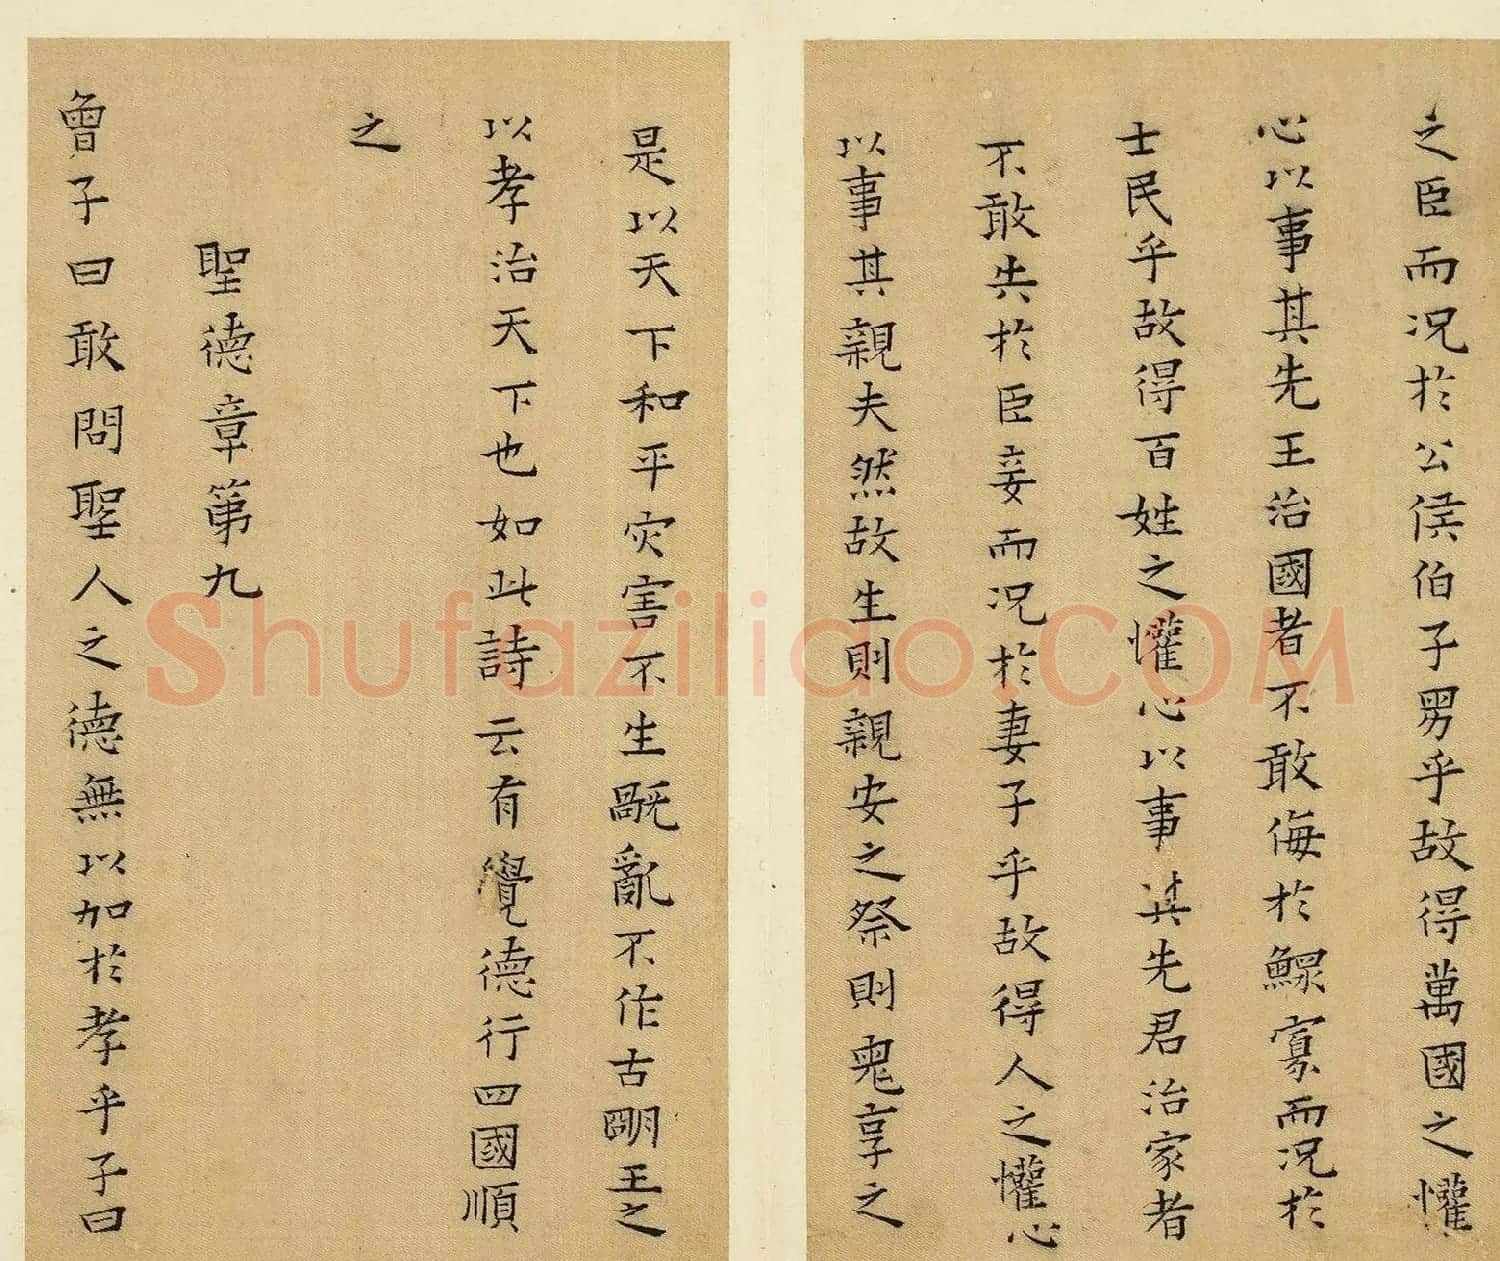 之臣而况於公侯伯子男乎故得萬國之懽
心以事其先王治國者不敢侮於鰥寡而况於
士民乎故得百姓之懽心以事其先君治家者
不敢失於臣妾而况於妻子乎故得人之懽心
以事其親夫然故生則親安之祭則鬼享之
是以天下和平灾害不生禍亂不作古明王之
以孝治天下也如此詩云有覺德行四國順
之
聖德章第九
曾子曰敢問聖人之德無以加於孝乎子曰
Shufaziliao.COM